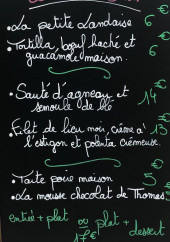 • La petite Landaise 6 €
• Tortilla, bœuf haché et 6 €
guacamole maison.
• Sauté d'agneau et 14 €
semoule de blé
• Filet de lieu noir, crème à 13 €
l'estragon et polenta crémeuse.
• Tarte pour maison 5 €
• La mousse chocolat de Thomas 5
entrée + plat ou plat + dessert
17€